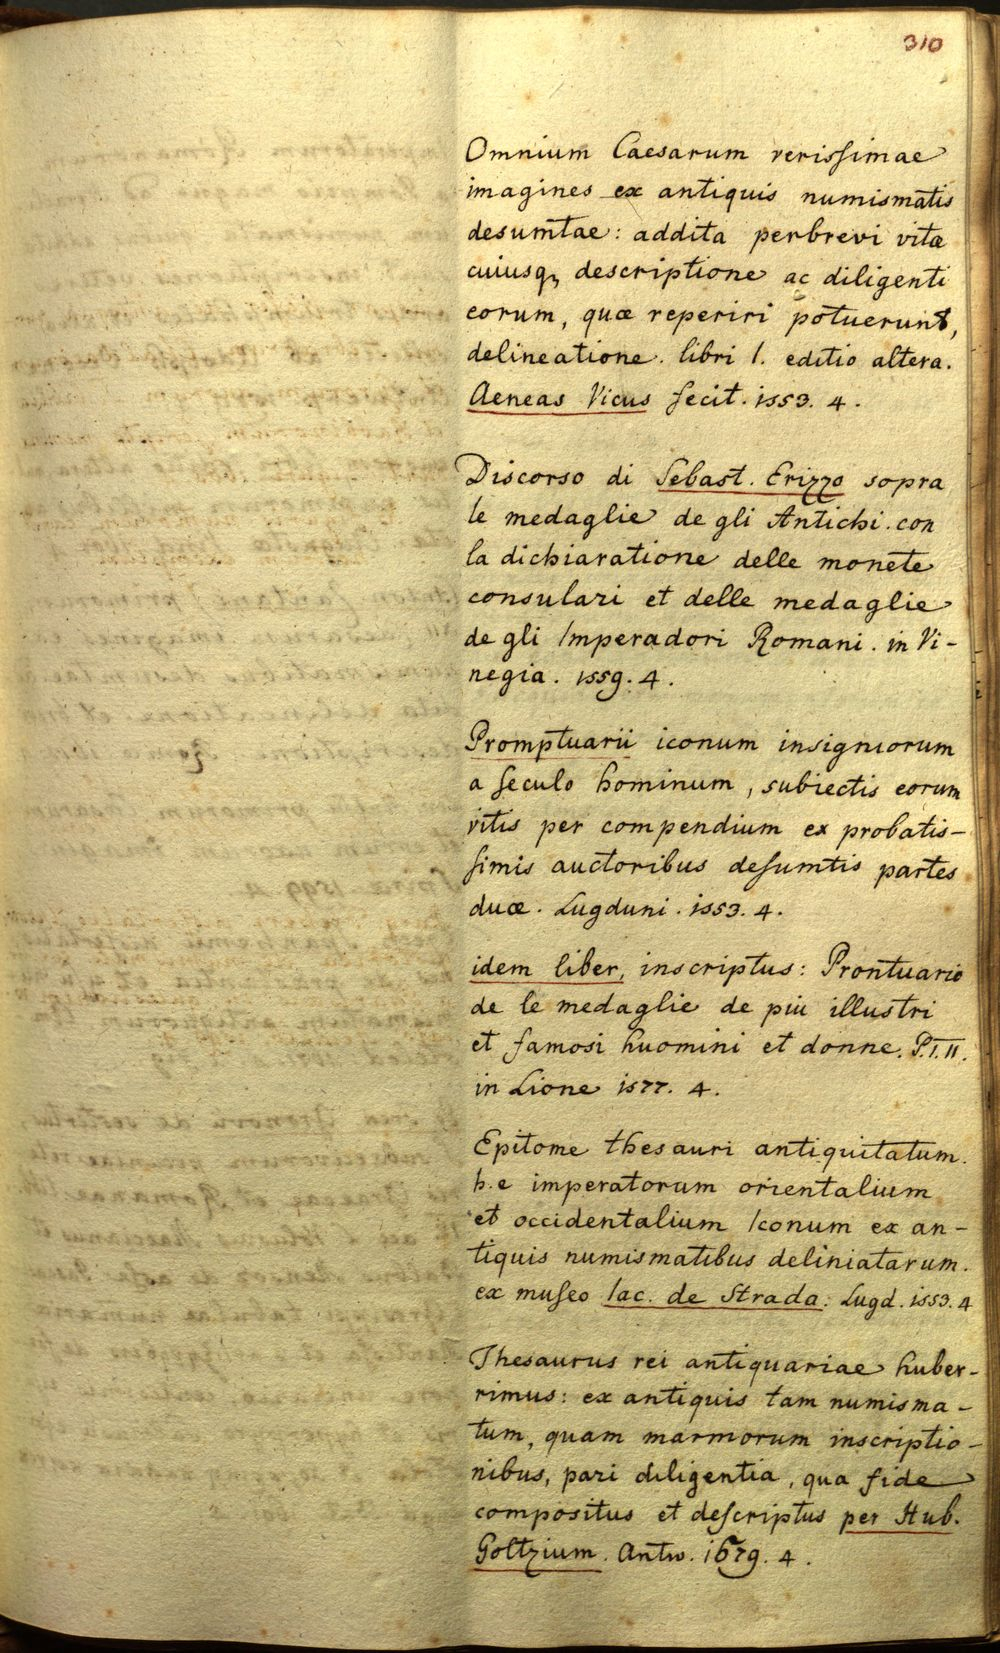 310
Omnium Caesarum verissimae
imagines ex antiquis numismatis
desumtae: addita perbrevi vitæ
cuiusq, descriptione ac diligenti
eorum, quæ reperiri potuerunt,
delineatione. libri I. editio altera.
Aeneas Vicus fecit. 1553. 4.
Discorso di Sebast. Erizzo sopra
le medaglie de gli Antichi. con
la dichiaratione delle monete
consulari et delle medaglie
de gli Imperadori Romani. in Vi-
negia. 1559. 4.
Promptuarii iconum insigniorum
a seculo hominum, subiectis eorum
vitis per compendium ex probatis-
simis auctoribus desumtis partes
duæ. Lugduni. 1553. 4.
idem liber, inscriptus: Prontuario
de le medaglie de piu illustri
et famosi huomini et donne. P. I. II.
in Lione 1577. 4.
Epitome thesauri antiquitatum.
h. e imperatorum orientalium
et occidentalium Iconum ex an-
tiquis numismatibus deliniatarum.
ex museo Iac. de Strada: Lugd. 1553. 4
Thesaurus rei antiquariae huber-
rimus: ex antiquis tam numisma-
tum, quam marmorum inscriptio-
nibus, pari diligentia, qua fide
compositus et descriptus per Hub.
Goltzium. Antw. 1679. 4.